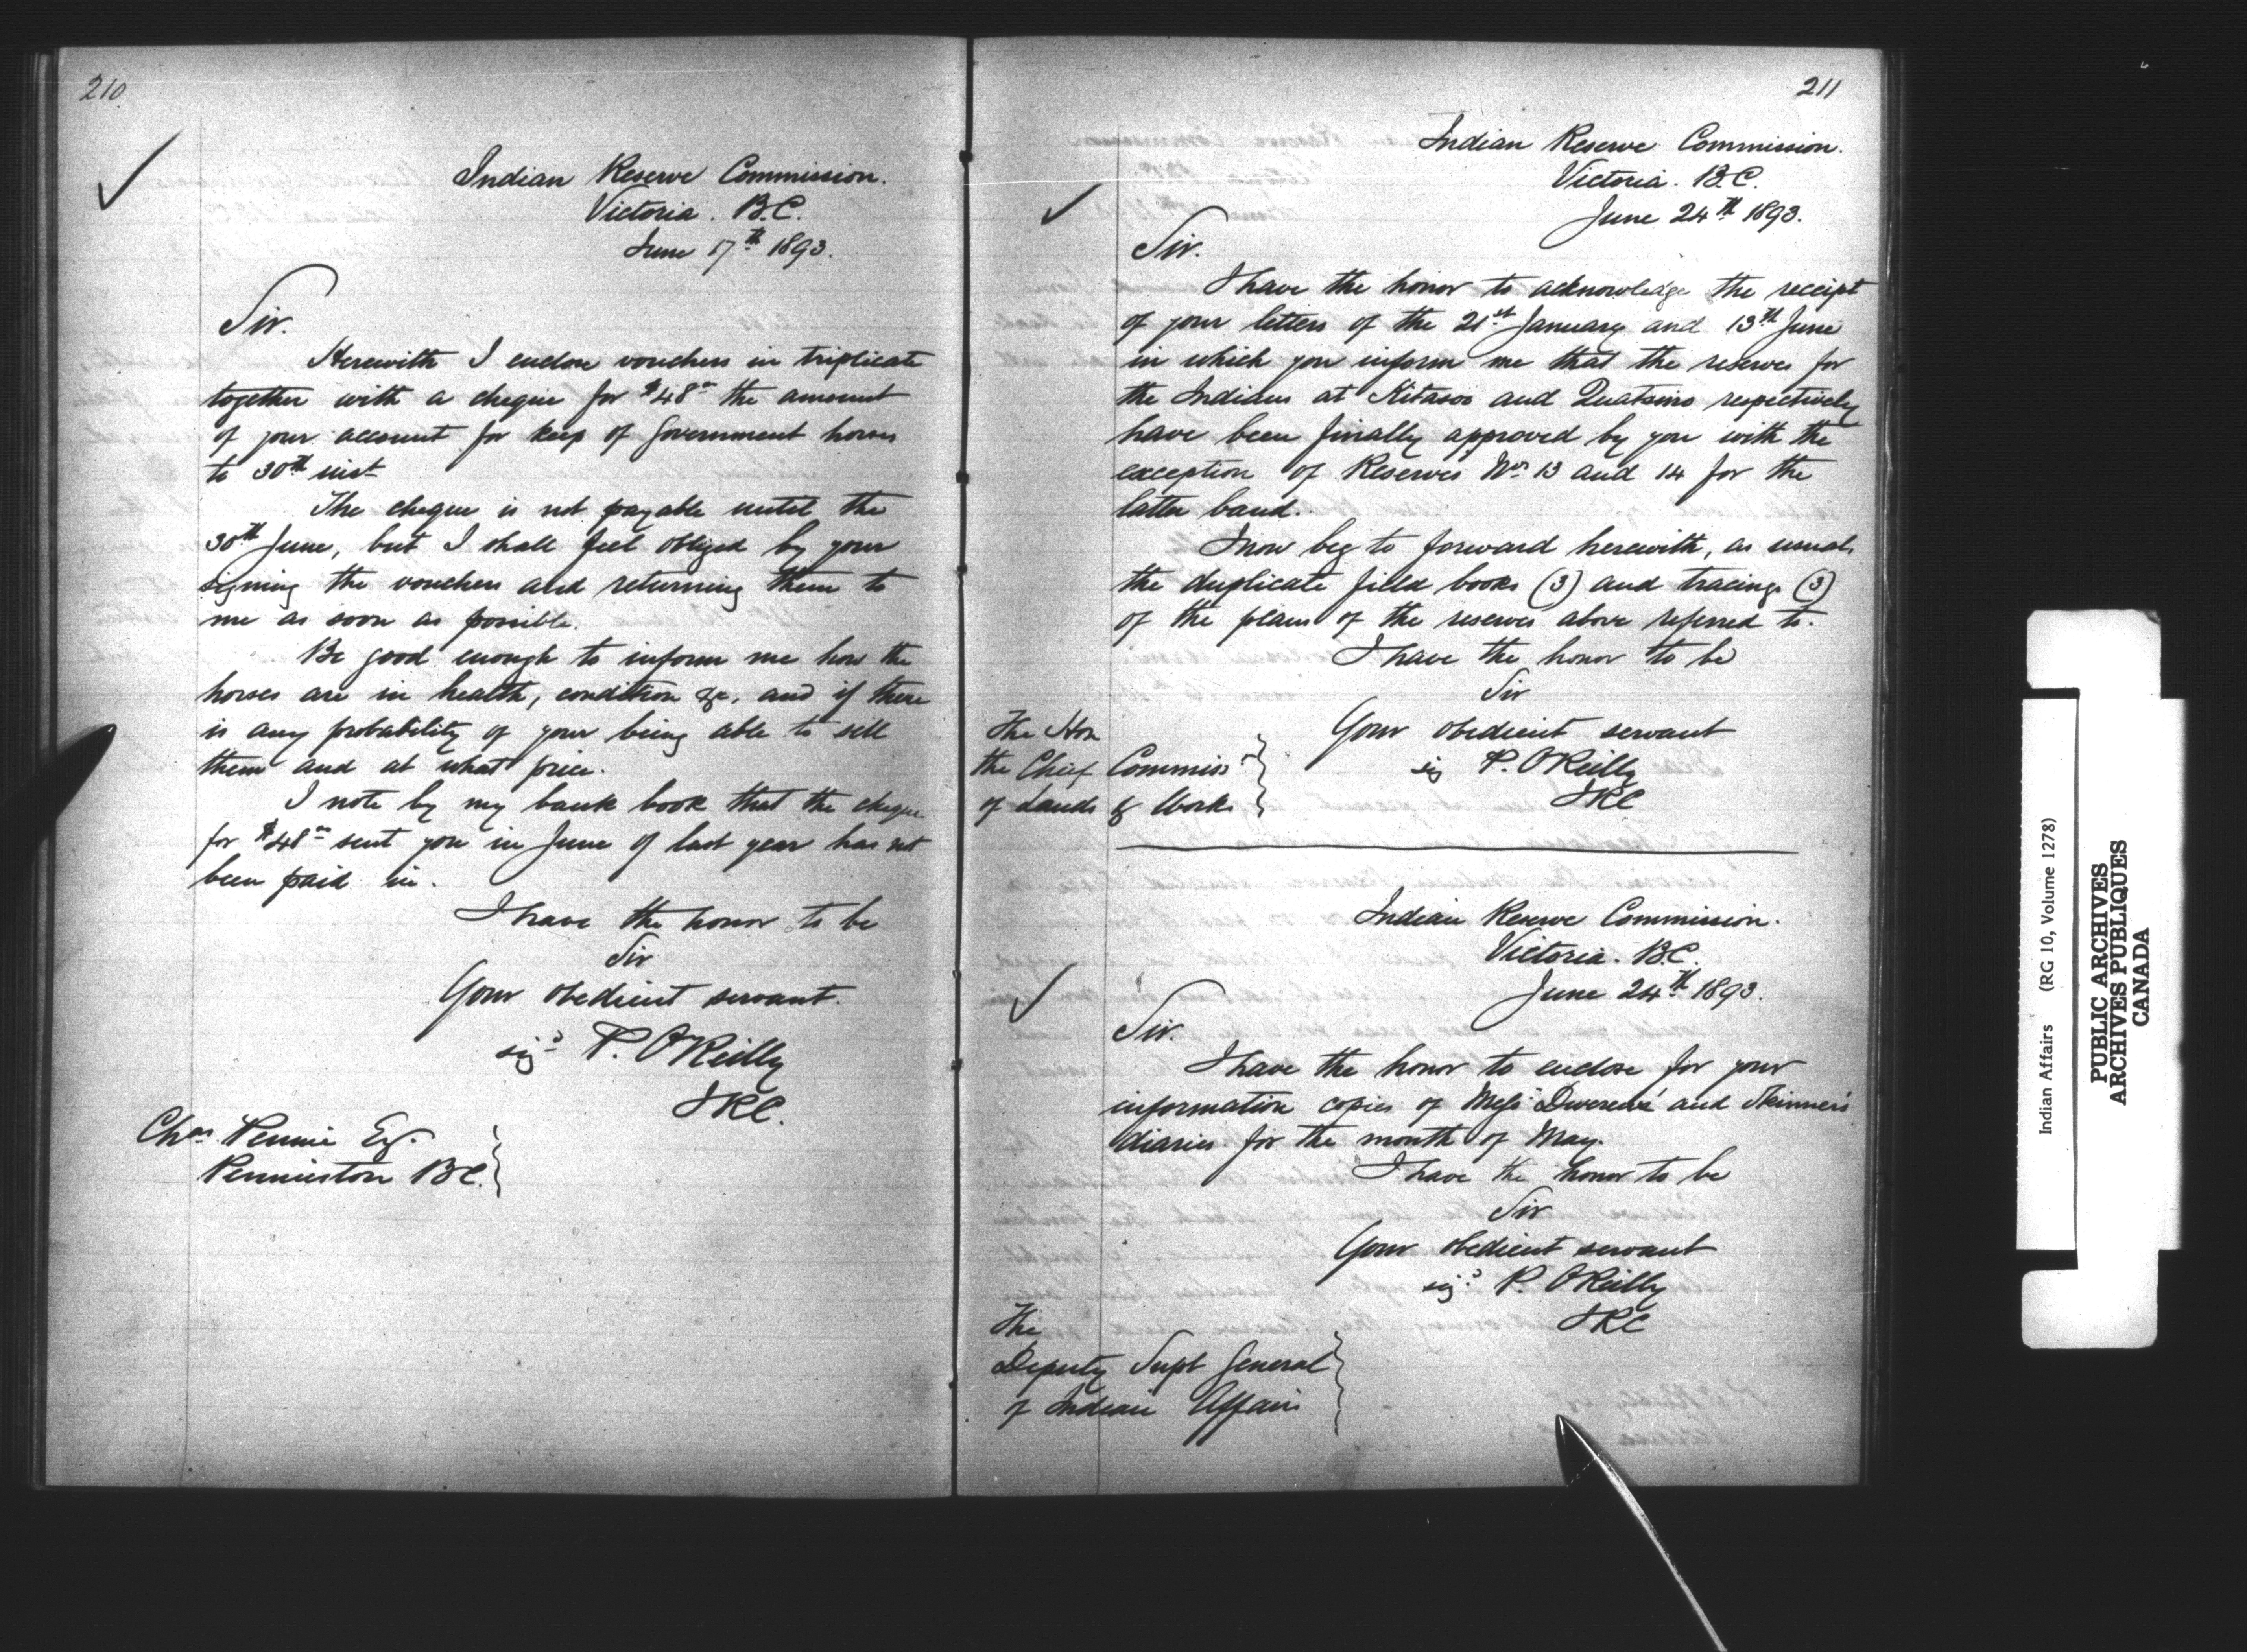 210
Indian Reserve Commission.
Victoria. B.C.
June 17th 1893.
Sir.
Herewith I enclose vouchers in triplicate
together with a cheque for $48 the amount
of your account for keep of Government horses
to 30th inst
The cheque is not payable until the
30th June, but I shall feel obliged by your
signing the vouchers and returning them to
me as soon as possible.
Be good enough to inform me how the
horses are in health, condition &c, and if there
is any probability of your being able to sell
them and at what price.
I note by my bank book that the cheque
for $48 sent you in June of last year has not
been paid in.
I have the honor to be
Sir
Your obedient servant.
sigd P. O'Reilly
IRC.
Chas Pennie Esq.
Pennieston BC.
211
Indian Reserve Commission.
Victoria. B.C.
June 24th 1893.
Sir.
I have the honor to acknowledge the receipt
of your letters of the 21st January and 13th June
in which you inform me that the reserves for
the Indians at Kitasoo and Quatsino respectively
have been finally approved by you with the
exception of Reserves Nos 13 and 14 for the
latter band.
I now beg to forward herewith, as usual,
the duplicate field books (3) and tracings (3)
of the plans of the reserves above referred to.
I have the honor to be
Sir
Your obedient servant
sig P. O'Reilly
IRC
The Hon
the Chief Commissr
of Lands & Works
Indian Reserve Commission.
Victoria. B.C.
June 24th 1893.
Sir.
I have the honor to enclose for your
information copies of Messrs and Skinner's
diaries for the month of May.
I have the honor to be
Sir
Your obedient servant
sigd P. O'Reilly
IRC
The
Deputy Supt General
of Indian Affairs
Indian Affairs (RG 10, Volume 1278)
PUBLIC ARCHIVES
ARCHIVES PUBLIQUES
CANADA